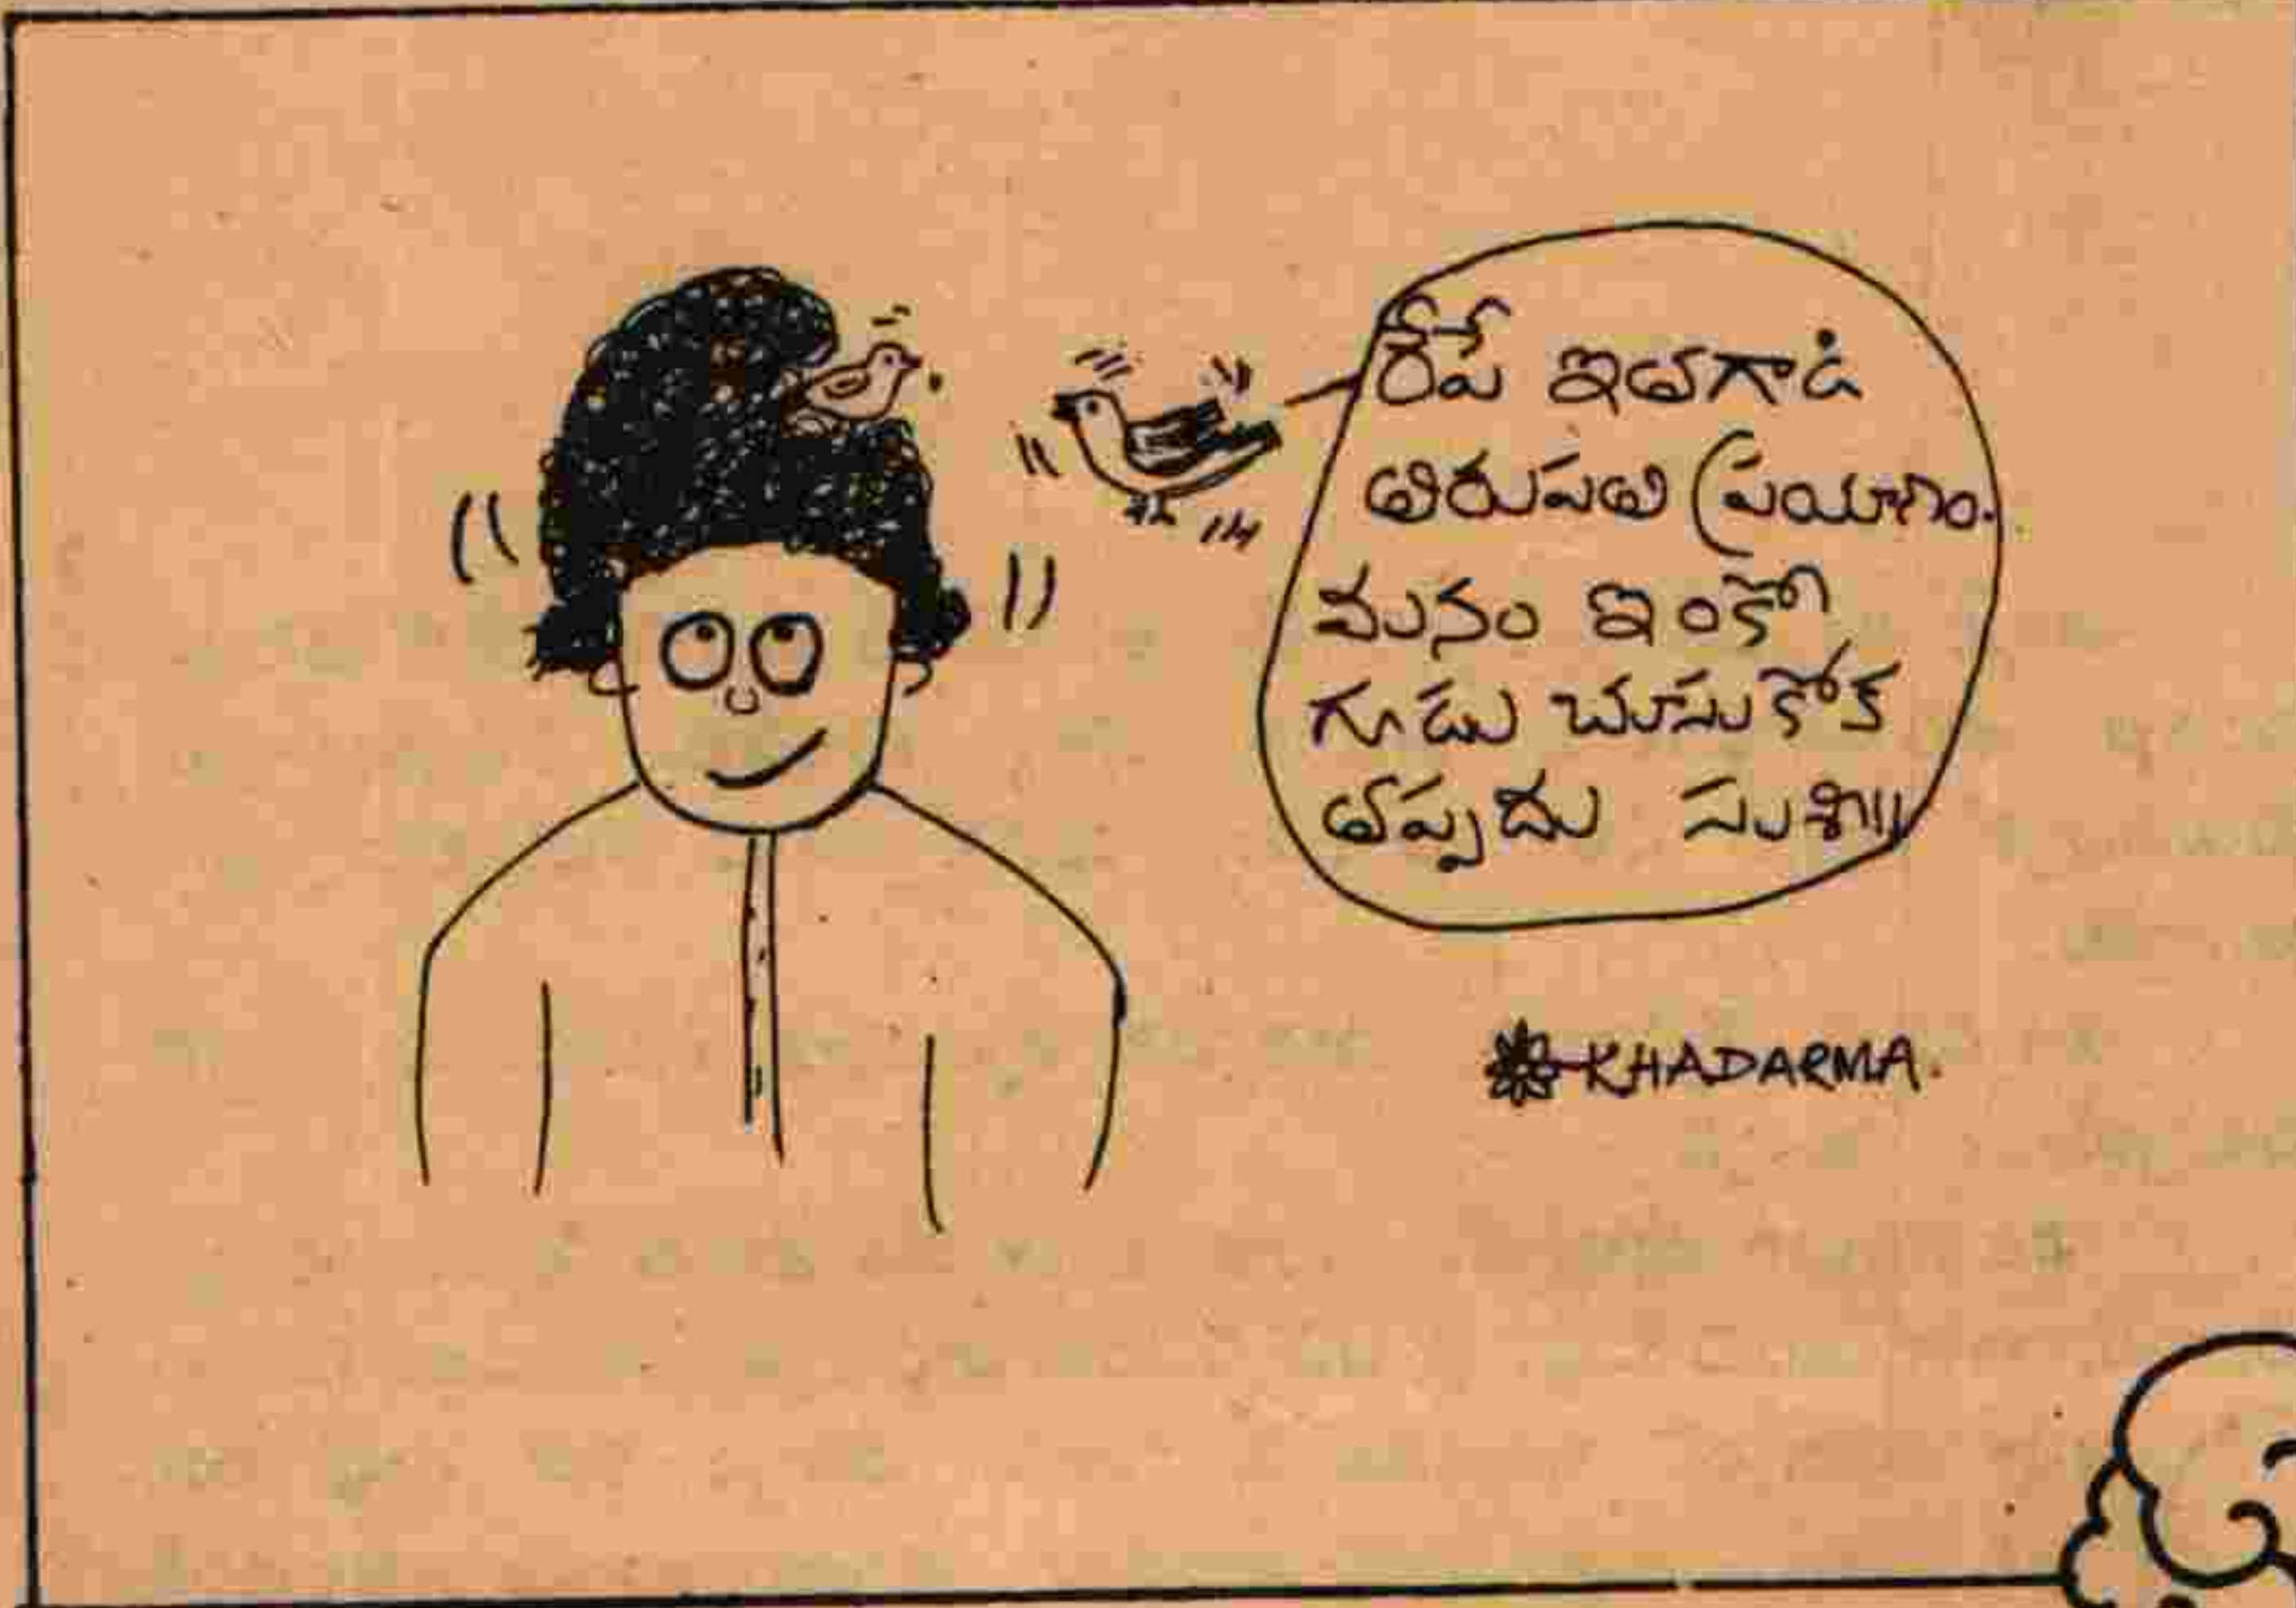 రేపే ఇతగాడి
తిరుపతి ప్రయాణం.
మనం ఇంకో
గూడు చూసుకోక
తప్పదు సుశీ!!
KHADARMA.